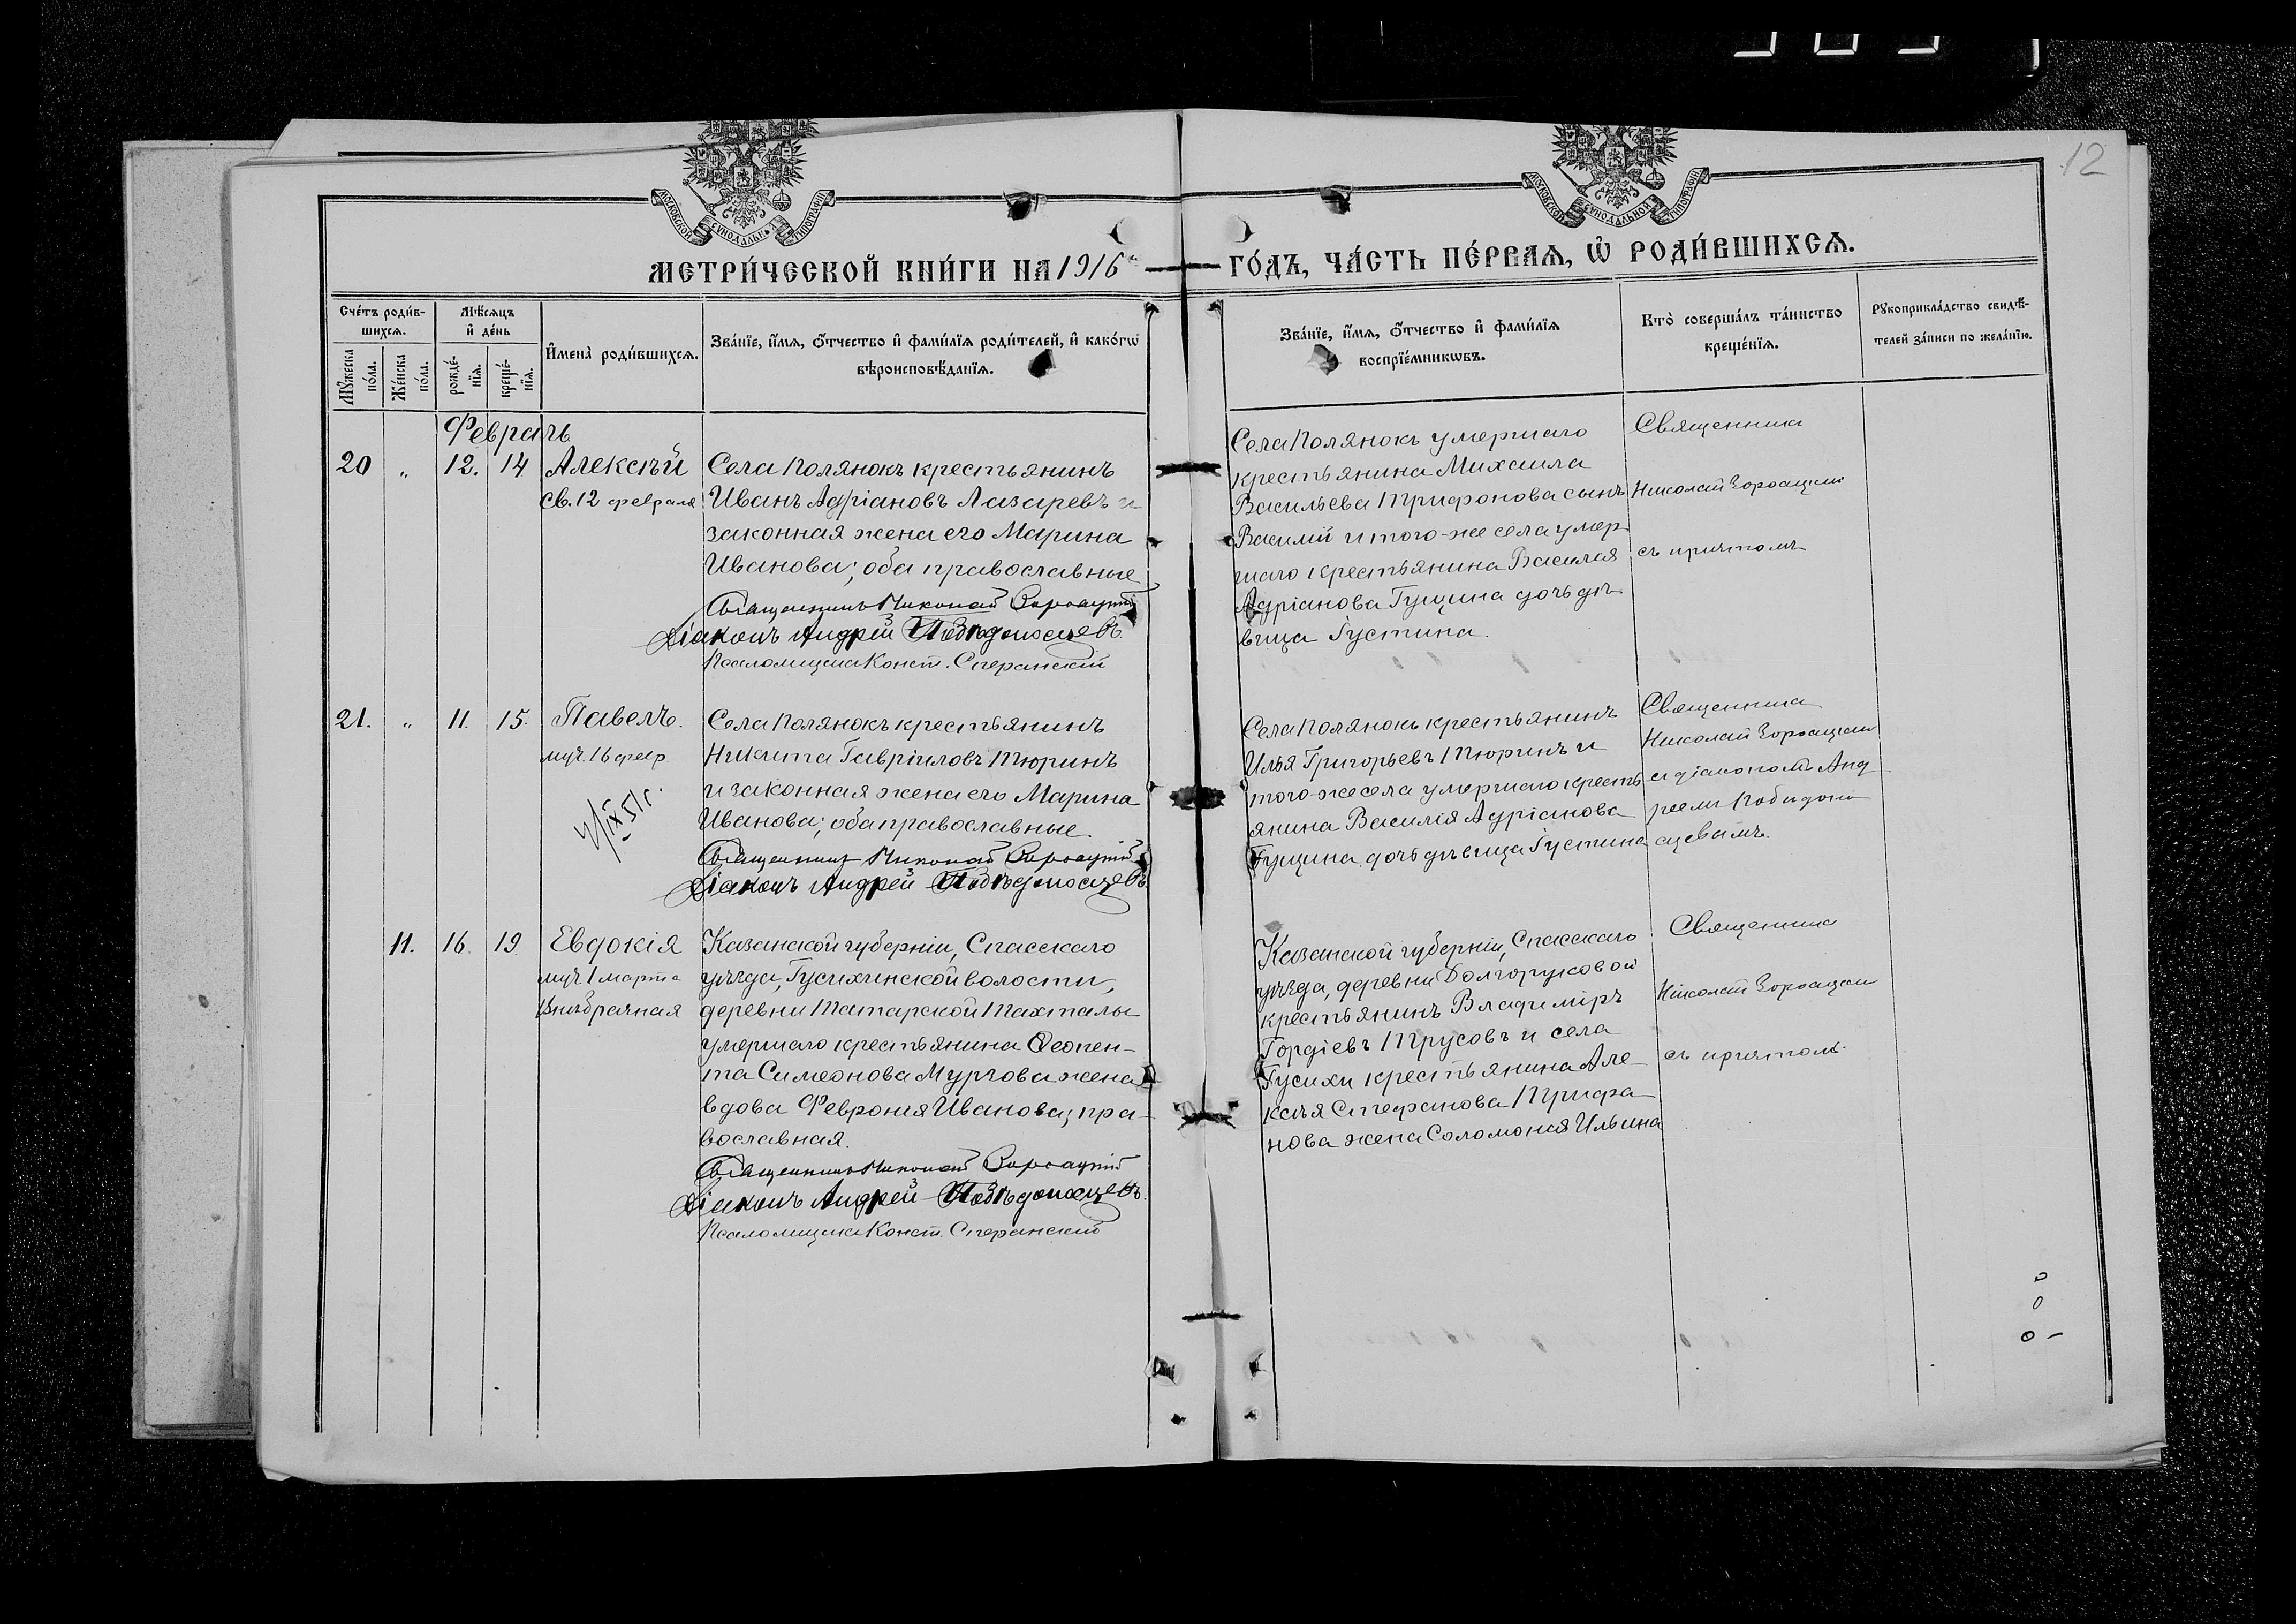 12
МОСКОВСКОЙ СѴНОДАЛЬНОЙ ТИПОГРАФІИ
МОСКОВСКОЙ СѴНОДАЛЬНОЙ ТИПОГРАФІИ
МЕТРИ́ЧЕСКОЙ КНИ́ГИ НА 1916 ГО́ДЪ, ЧА́СТЬ ПЕ́РВАѦ, Ѽ РОДИ́ВШИХСѦ.
Сче́тъ роди́в-
шихсѧ.
Мꙋ́жеска по́ла.
Же́нска по́ла.
Мѣ́сѧцъ
и҆ де́нь
рожде́-нїѧ.
креще́-нїѧ.
И҆мена̀ роди́вшихсѧ.
Зва́нїе, и҆́мѧ, ѻ҆́тчество и҆ фами́лїѧ роди́телей, и҆ како́гѡ
вѣроисповѣ́данїѧ.
Зва́нїе, и҆́мѧ, ѻ҆́тчество и҆ фами́лїѧ
воспрїе́мникѡвъ.
Кто̀ соверша́лъ та́инство
креще́нїѧ.
Рꙋкоприкла́дство свидѣ́-
телей за́писи по жела́нїю.
Февраль
20 " 12. 14 Алексѣй
св. 12 февраля
Села Полянокъ крестьянинъ
Иванъ Адріановъ Лазаревъ и
законная жена его Марина
Иванова; оба православные
Священникъ Николай
Діаконъ Андрей Побѣдоносцевъ
Псаломщикъ Конст. Сперанскій
Села Полянокъ умершаго
крестьянина Михаила
Васильева Трифонова сынъ
Василій и того-же села умер
шаго крестьянина Василія
Адріанова Гущина дочь дѣ
вица Іустина.
Священникъ
Николай
съ причтомъ
21. " 11. 15. Павелъ.
муч. 16 февр.
Села Полянокъ крестьянинъ
Никита Гавріиловъ Тюринъ
и законная жена его Марина
Иванова; оба православные.
Священникъ Николай
Діаконъ Андрей Побѣдоносцевъ
Села Полянокъ крестьянинъ
Илья Григорьевъ Тюринъ и
того-же села умершаго кресть
янина Василія Адріанова
Гущина дочь дѣвица Іустина
Священникъ
Николай
съ діакономъ Анд
реемъ Побѣдоно
сцевымъ.
11. 16. 19 Евдокія
муч. 1 марта
Внѣбрачная
Казанской губерніи, Спасскаго
уѣзда, Гусихинской волости,
деревни Татарской Тахталы
умершаго крестьянина Ѳеопен-
та Симеонова Мурзова жена
вдова Феврония Иванова; пра-
вославная.
Священникъ Николай
Діаконъ Андрей Побѣдоносцевъ
Псаломщикъ Конст. Сперанскій
Казанской губерніи, Спасскаго
уѣзда, деревни Долгоруковой
крестьянинъ Владиміръ
Гордіевъ Трусовъ и села
Гусихи крестьянина Але-
ксѣя Стефанова Трифа-
нова жена Соломония Ильина
Священникъ
Николай
съ причтомъ